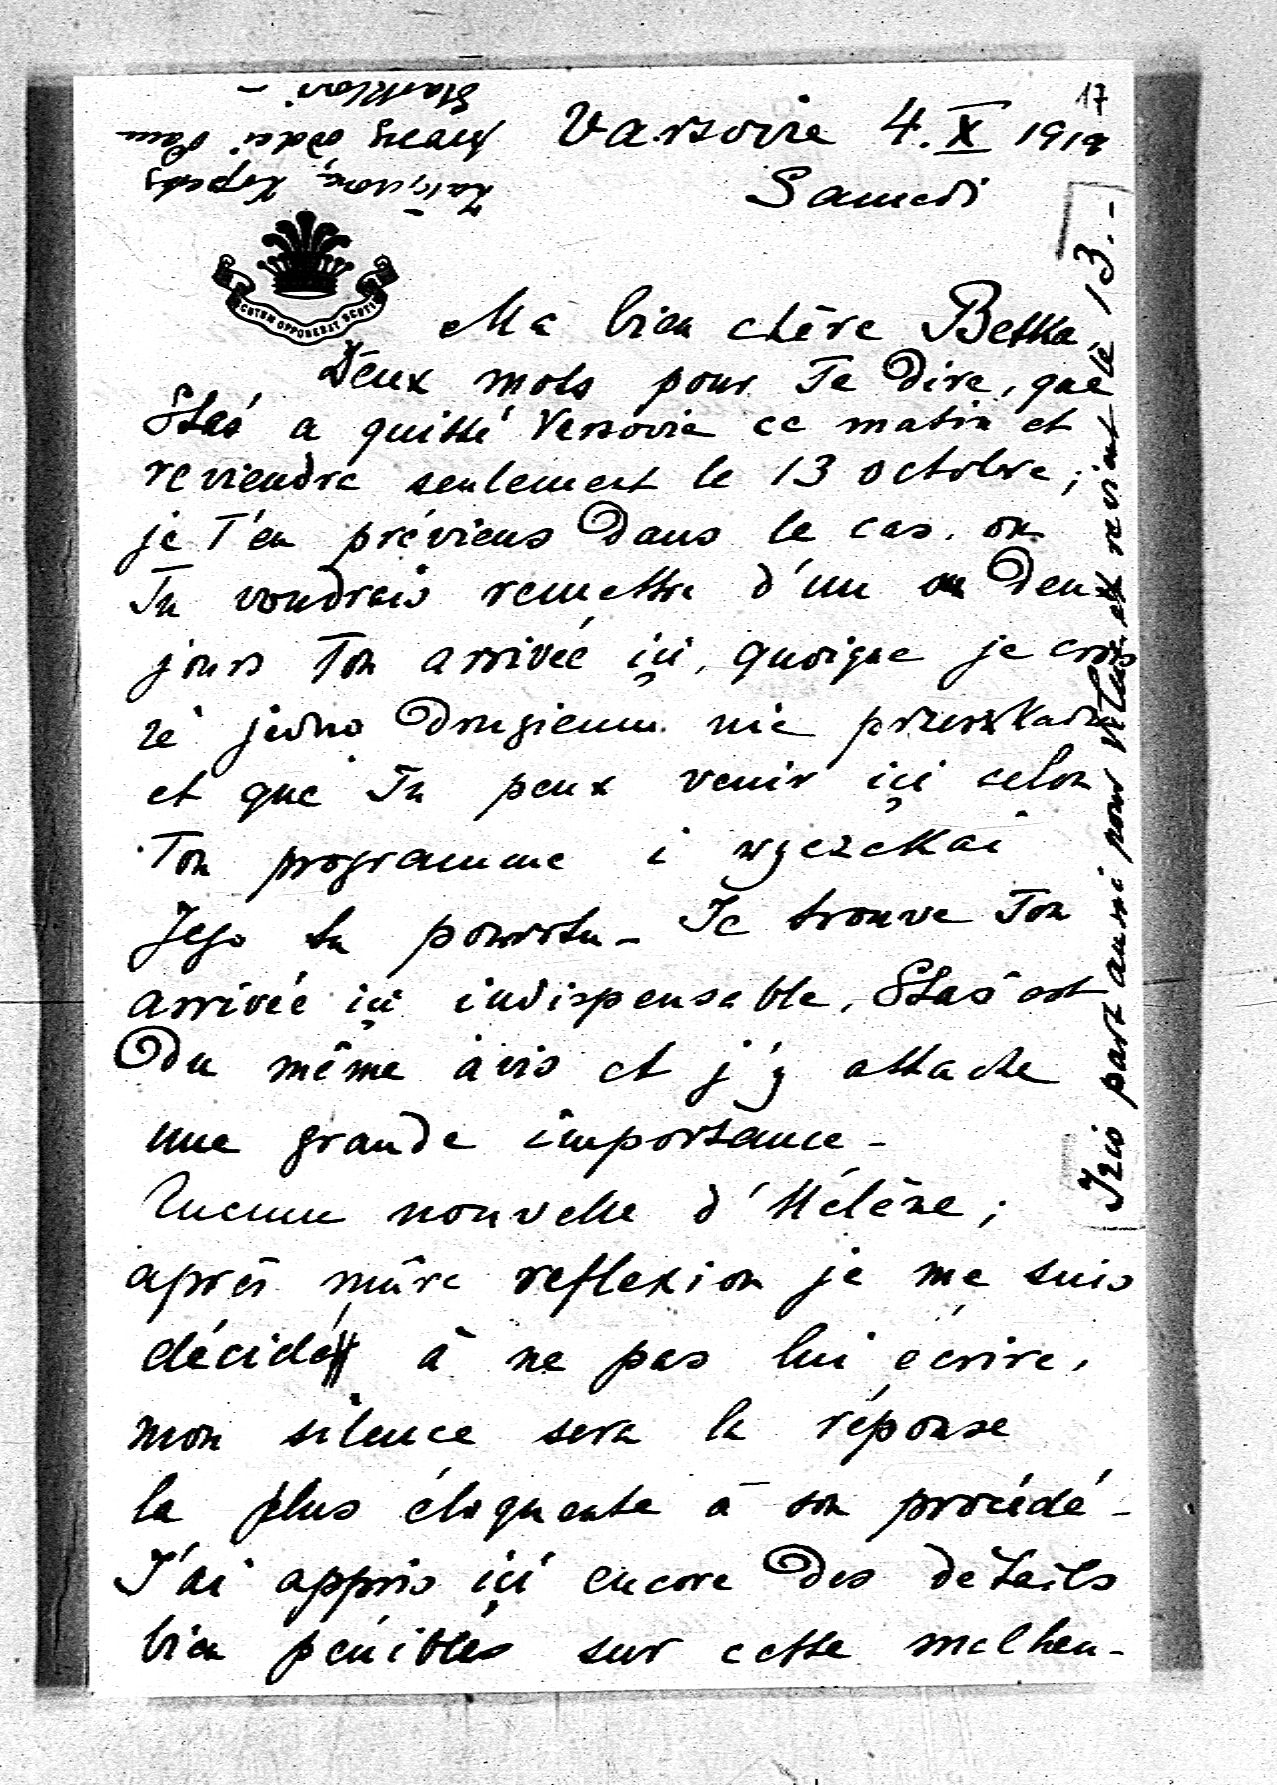 17
Varsovie 4.X 1919
Samedi
Załączoną kopertę
proszę oddać Pani
SCUTUM OPPONEBAT SCOTI
Ma bien chère Betka
Deux mots pour Te dire, que
Staś a quitté Varsovie ce matin et
reviendra seulement le 13 octobre;
je T'en préviens dans le cas, où
Tu voudrais remettre d'un ou deux
jours Ton arrivée ici, quoique je crois
że jedno drugiemu nie przeszkadza
et que Tu peux venir ici selon
Ton programme i wyczekać
Jego tu powrotu – Je trouve Ton
arrivée ici indispensable, Staś est
du même avis et j'y attache
une grande importance –
Aucune nouvelle d'Hélène;
après mûre reflexion je me suis
décidé à ne pas lui écrire,
mon silence sera la réponse
la plus éloquente à son procédé –
J'ai appris ici encore des details
bien pénibles sur cette malheu-
Izio part aussi pour Vilna et revient le 13. –